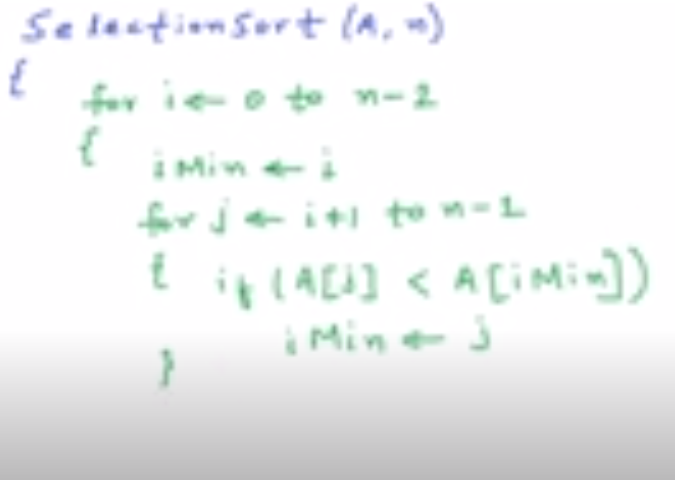 SelectionSort (A, n)
{
for i ← 0 to n-2
{
iMin ← i
for j ← i+1 to n-1
{ if (A[j] < A[iMin])
iMin ← j
}